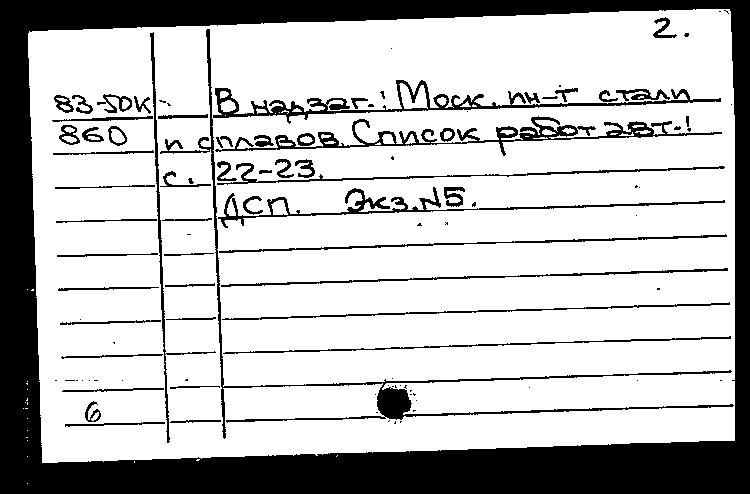 2.
83-50К- В надзаг.: Моск. ин-т стали
860 и сплавов. Список работ авт.:
с. 22-23.
ДСП. Экз.N5.
6